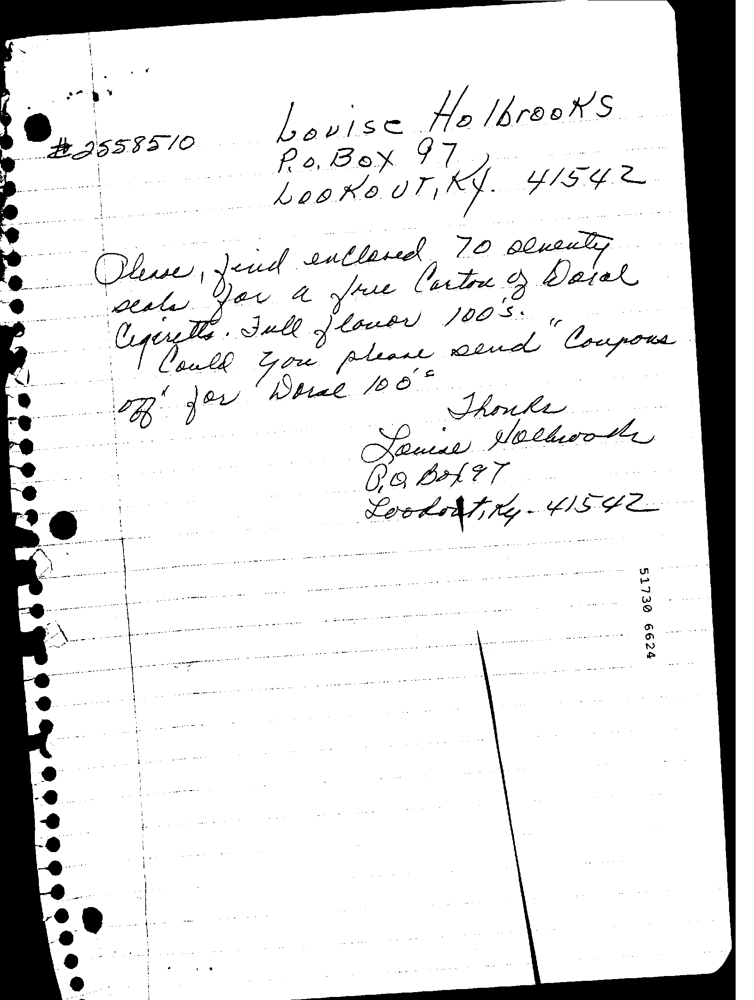 Louise Holbrooks
#2558510
P.O. Box 97
Lookout, Ky. 41542
Please, find enclosed 70 seventy
seals for a free Carton of Doral
Cigeretts. Full flavor 100's.
Could you please send "Coupons
off" for Doral 100's
Thanks
Louise Holbrooks
P.O. Box 97
Lookout, Ky - 41542
51730 6624